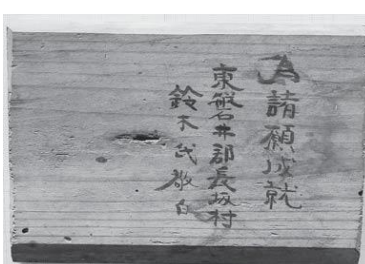 為請願成就
東磐井郡長坂村
鈴木氏敬白